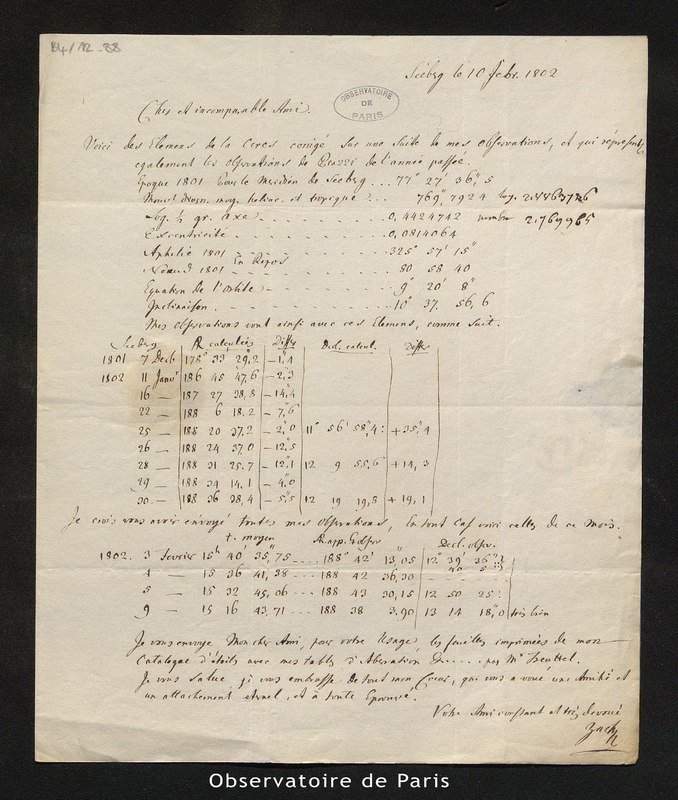 B4/12-88
Seeberg le 10 febr. 1802
OBSERVATOIRE
DE
PARIS
Cher et incomparable Ami.
Voici des Elemens de la Ceres corrigé sur une Suite de mes observations, et qui représente
egalement les observations de Piazzi de l'année passée.
Epoque 1801 Pour le Meridien de Seeberg ... 77° 27' 36", 5
Mouv! diurn. moy. helioc. et tropique ... 769", 7924 log. 2.8863736
Log. ½ gr. axe ... 0,4424742 nombre 2,769965
Excentricité ... 0,0814064
Aphelie 1801 en Repos ... 325° 57' 15"
Noeud 1801 ... 80 58 40
Equation de l'orbite ... 9° 20' 8"
Inclinaison ... 10° 37. 56, 6
Mes observations vont ainsi avec ces Elemens, comme suit.
Seeberg AR calculées Diffce Decl. calcul. Diffce
1801 7 Decb 178° 33' 29",2 –1",4
1802 11 Janvr 186 45 47,6 –2,3
16 — 187 27 38,8 –14,4
22 — 188 6 18.2 –7,6
25 — 188 20 37,2 –2,0 11° 56' 58",4: +35",4
26 — 188 24 37,0 –12,5
28 — 188 31 25.7 –12,1 12 9 55,6 +14,3
29 — 188 34 14,1 –4,0
30 — 188 36 38,4 –5,5 12 19 19,8 +19,1
Je crois vous avoir envoyé toutes mes Observations, En tout cas voici celles de ce mois.
t. moyen AR app. observ Decl. observ.
1802. 3 fevrier 15h 40' 35",75 .... 188° 42' 13,"05 12° 39' 36"
4 — 15 36 41,38 ... 188 42 36,30
5 — 15 32 45,06 ... 188 43 30,15 12 50 25:
9 — 15 16 43.71 ... 188 38 3.90 13 14 18,0 très bien
Je vous envoye Mon cher Ami, pour votre Usage, les feuilles imprimées de mon
Catalogue d'étoiles avec mes tables d'Aberation &..... par Mr
Je vous Salue, je vous embrasse de tout mon Coeur, qui vous a voué une Amitié et
un attachement eternel, et à toute Epreuve.
Votre Ami constant et très devoué
Zach
Observatoire de Paris